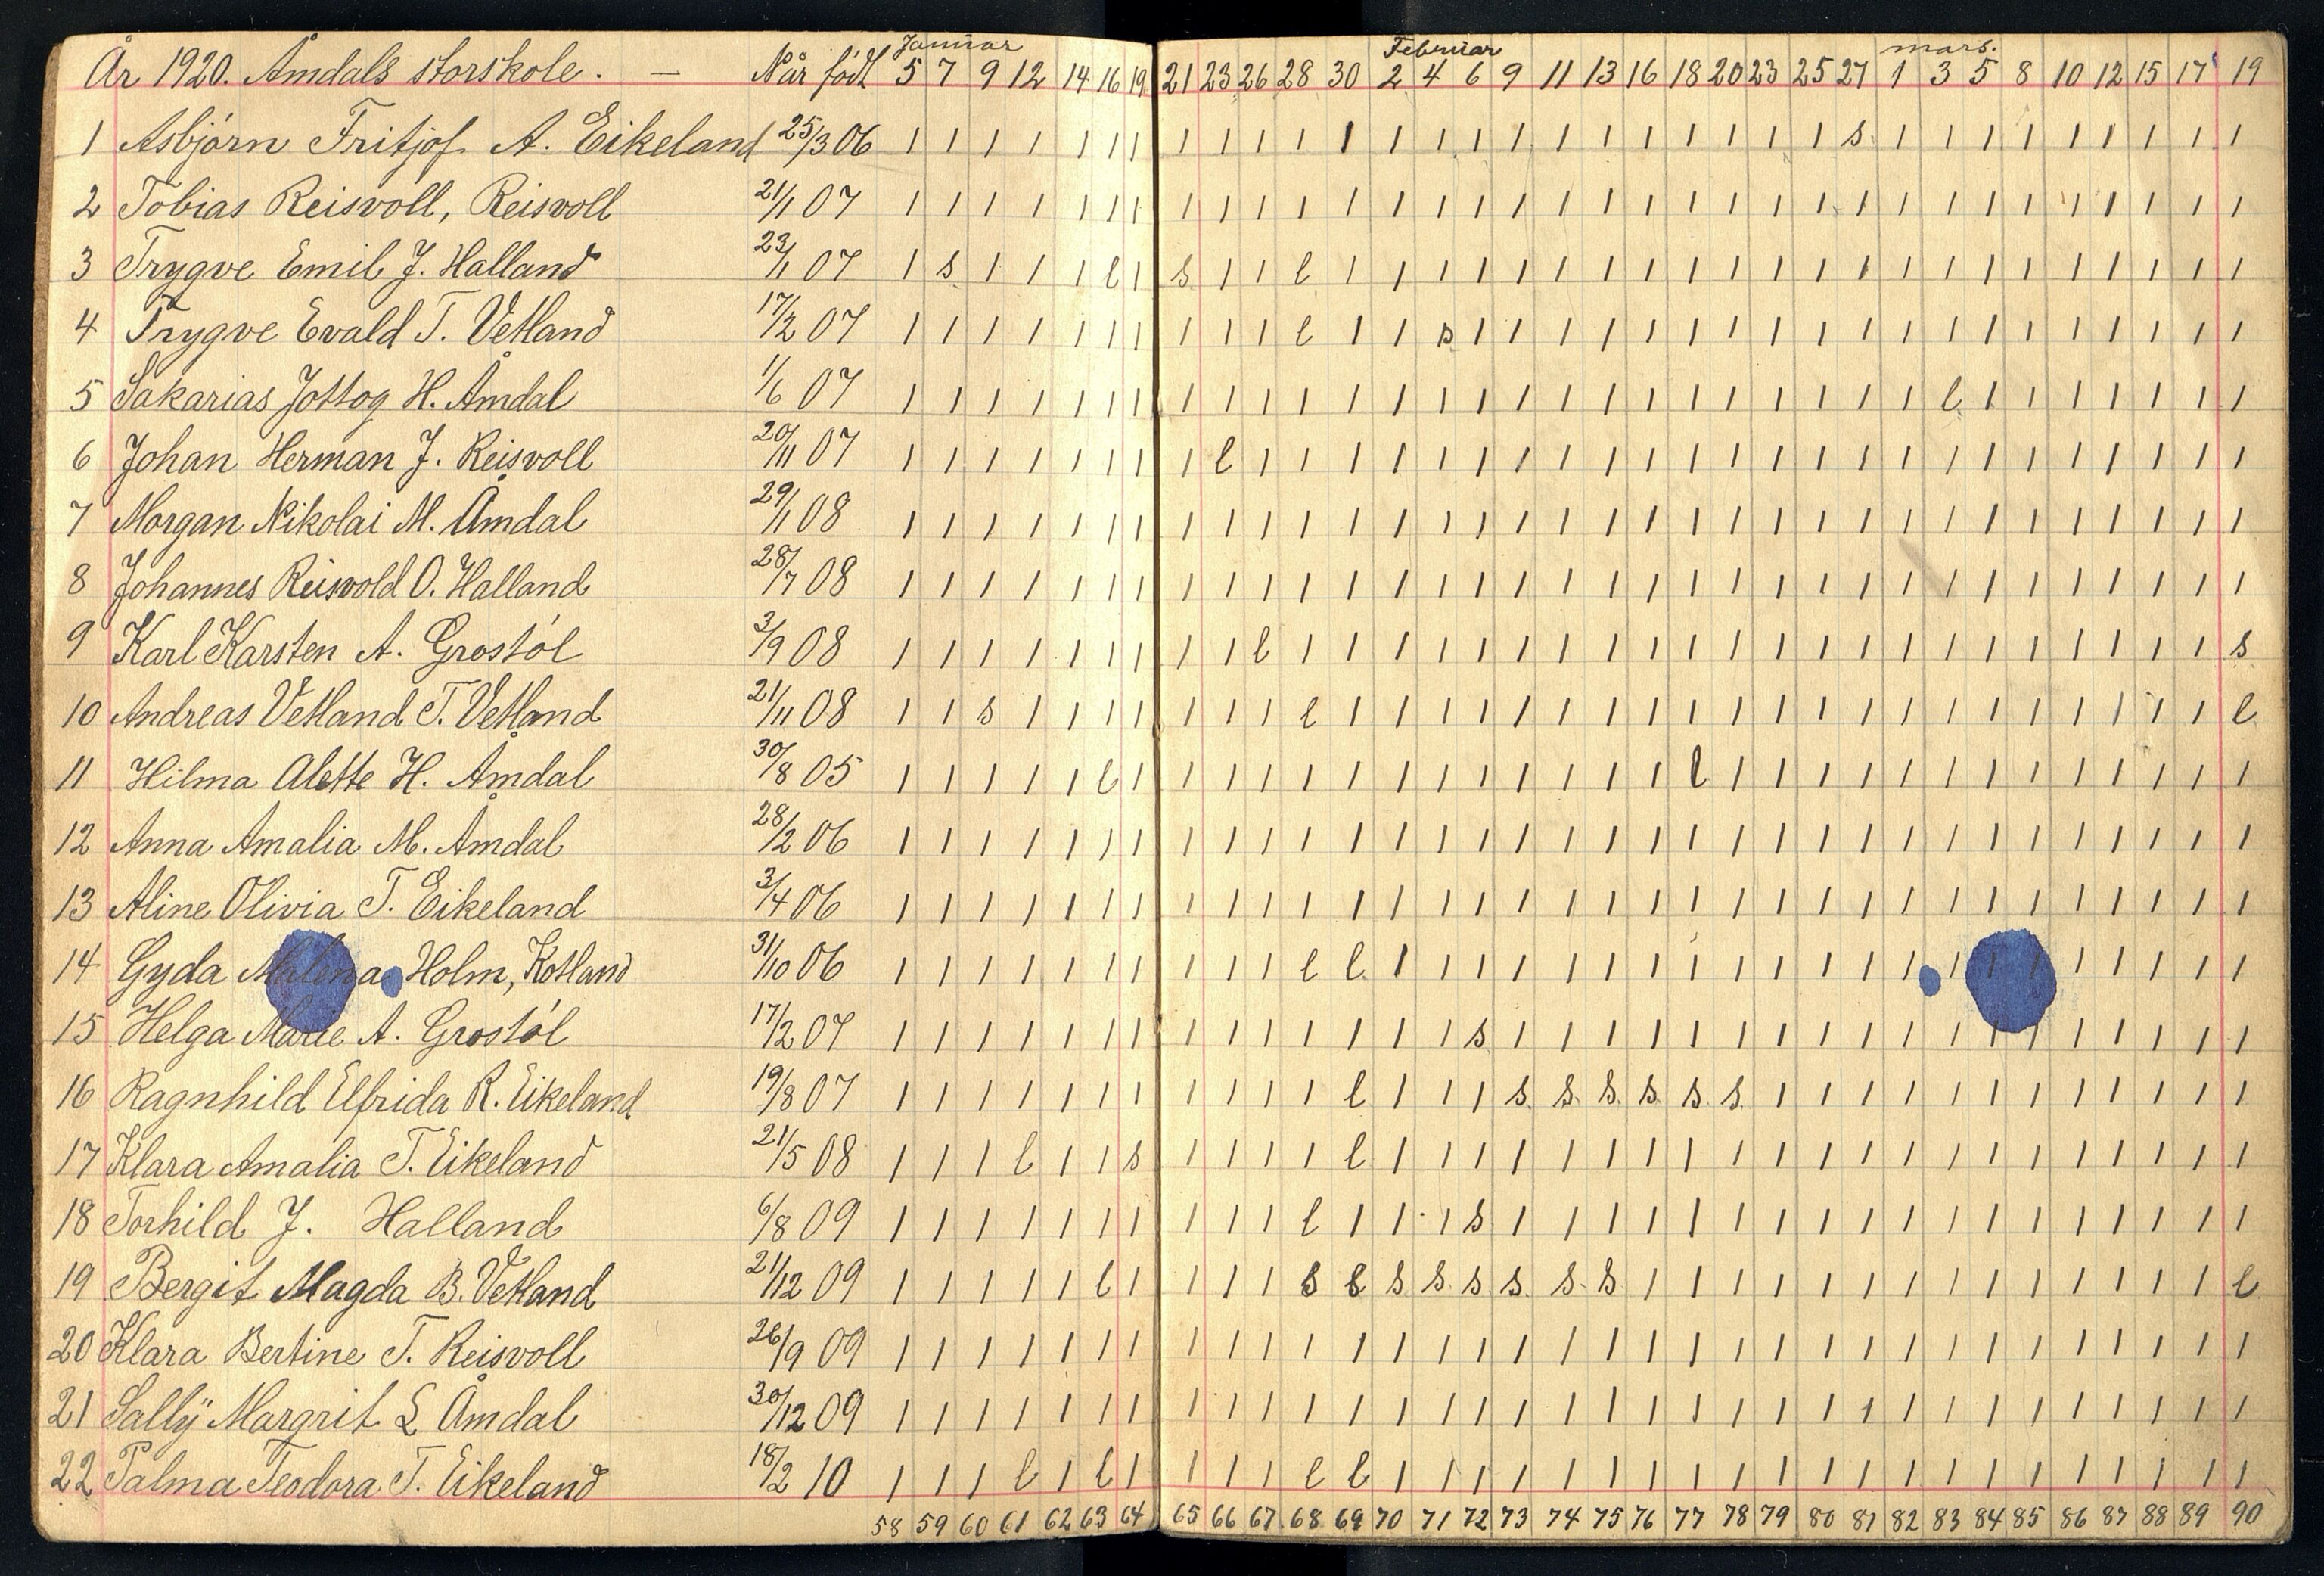 Januar Februar mars.
År 1920. Åmdals storskole. — Når født 5 7 9 12 14 16 19 21 23 26 28 30 2 4 6 9 11 13 16 18 20 23 25 27 1 3 5 8 10 12 15 17 19
1 Asbjørn Fritjof A. Eikeland 25/3 06 1 1 1 1 1 1 1 1 1 1 1 1 1 1 1 1 1 1 1 1 1 1 1 s 1 1 1 1 1 1 1 1 1
2 Tobias Reisvoll, Reisvoll 21/1 07 1 1 1 1 1 1 1 1 1 1 1 1 1 1 1 1 1 1 1 1 1 1 1 1 1 1 1 1 1 1 1 1 1
3 Trygve Emil J. Halland 23/1 07 1 s 1 1 1 l 1 s 1 1 l 1 1 1 1 1 1 1 1 1 1 1 1 1 1 1 1 1 1 1 1 1 1
4 Trygve Evald T. Vetland 17/2 07 1 1 1 1 1 1 1 1 1 1 l 1 1 s 1 1 1 1 1 1 1 1 1 1 1 1 1 1 1 1 1 1 1
5 Sakarias Jottog H. Åmdal 1/6 07 1 1 1 1 1 1 1 1 1 1 1 1 1 1 1 1 1 1 1 1 1 1 1 1 1 l 1 1 1 1 1 1 1
6 Johan Herman J. Reisvoll 20/11 07 1 1 1 1 1 1 1 1 l 1 1 1 1 1 1 1 1 1 1 1 1 1 1 1 1 1 1 1 1 1 1 1 1
7 Morgan Nikolai M. Åmdal 29/1 08 1 1 1 1 1 1 1 1 1 1 1 1 1 1 1 1 1 1 1 1 1 1 1 1 1 1 1 1 1 1 1 1 1
8 Johannes Reisvold O. Halland 28/7 08 1 1 1 1 1 1 1 1 1 1 1 1 1 1 1 1 1 1 1 1 1 1 1 1 1 1 1 1 1 1 1 1 1
9 Karl Karsten A. Grostøl 3/9 08 1 1 1 1 1 1 1 1 1 l 1 1 1 1 1 1 1 1 1 1 1 1 1 1 1 1 1 1 1 1 1 1 s
10 Andreas Vetland T. Vetland 21/11 08 1 1 s 1 1 1 1 1 1 1 l 1 1 1 1 1 1 1 1 1 1 1 1 1 1 1 1 1 1 1 1 1 l
11 Hilma Alette H. Åmdal 30/8 05 1 1 1 1 1 l 1 1 1 1 1 1 1 1 1 1 1 1 1 l 1 1 1 1 1 1 1 1 1 1 1 1 1
12 Anna Amalia M. Åmdal 28/2 06 1 1 1 1 1 1 1 1 1 1 1 1 1 1 1 1 1 1 1 1 1 1 1 1 1 1 1 1 1 1 1 1 1
13 Aline Olivia T. Eikeland 3/4 06 1 1 1 1 1 1 1 1 1 1 1 1 1 1 1 1 1 1 1 1 1 1 1 1 1 1 1 1 1 1 1 1 1
14 Gyda Malena Holm, Kotland 31/10 06 1 1 1 1 1 1 1 1 1 1 l l 1 1 1 1 1 1 1 1 1 1 1 1 1 1 1 1 1 1 1 1 1
15 Helga Marie A. Grostøl 17/2 07 1 1 1 1 1 1 1 1 1 1 1 1 1 1 s 1 1 1 1 1 1 1 1 1 1 1 1 1 1 1 1 1 1
16 Ragnhild Elfrida R. Eikeland 19/8 07 1 1 1 1 1 1 1 1 1 1 1 l 1 1 1 s. s. s. s. s. s. 1 1 1 1 1 1 1 1 1 1 1 1
17 Klara Amalia T. Eikeland 21/5 08 1 1 1 l 1 1 s 1 1 1 1 l 1 1 1 1 1 1 1 1 1 1 1 1 1 1 1 1 1 1 1 1 1
18 Torhild J. Halland 6/8 09 1 1 1 1 1 1 1 1 1 1 l 1 1 1 s 1 1 1 1 1 1 1 1 1 1 1 1 1 1 1 1 1 1
19 Bergit Magda B. Vetland 21/12 09 1 1 1 1 1 l 1 1 1 1 s l s s. s s. s. s 1 1 1 1 1 1 1 1 1 1 1 1 1 1 l
20 Klara Bertine T. Reisvoll 26/9 09 1 1 1 1 1 1 1 1 1 1 1 1 1 1 1 1 1 1 1 1 1 1 1 1 1 1 1 1 1 1 1 1 1
21 Sally Margrit L Åmdal 30/12 09 1 1 1 1 1 1 1 1 1 1 1 1 1 1 1 1 1 1 1 1 1 1 1 1 1 1 1 1 1 1 1 1 1
22 Palma Teodora T. Eikeland 18/2 10 1 1 1 l 1 l 1 1 1 1 l l 1 1 1 1 1 1 1 1 1 1 1 1 1 1 1 1 1 1 1 1 1
58 59 60 61 62 63 64 65 66 67 68 69 70 71 72 73 74 75 76 77 78 79 80 81 82 83 84 85 86 87 88 89 90